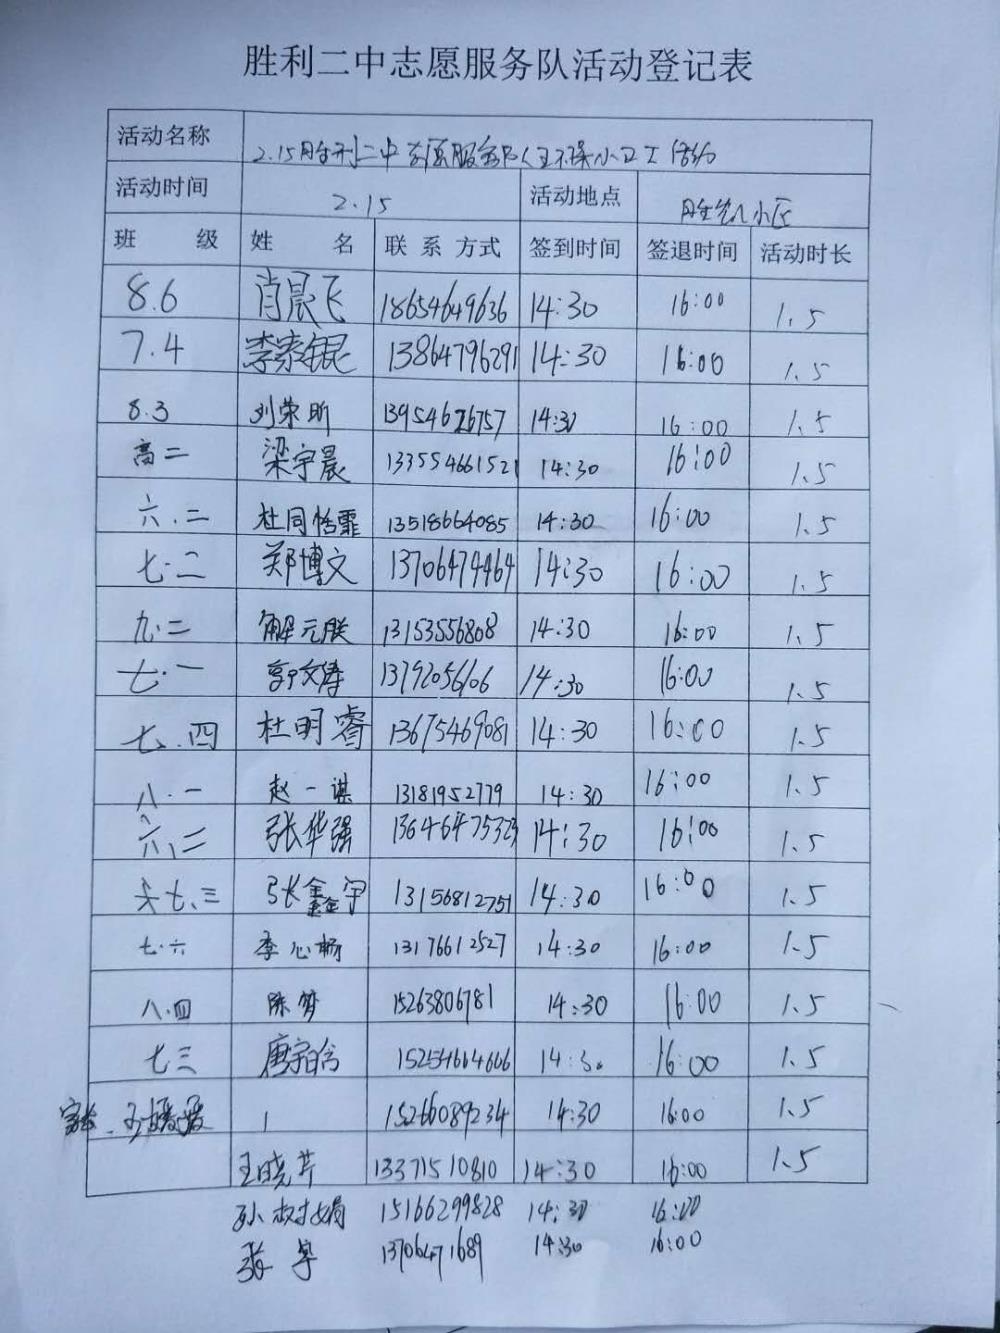 胜利二中志愿服务队活动登记表
活动名称 2.15胜利二中志愿服务队 小卫士活动
活动时间 2.15 活动地点 小区
班 级 姓 名 联系方式 签到时间 签退时间 活动时长
8.6 肖晨飞 18654649636 14:30 16:00 1.5
7.4 李 锟 13864796291 14:30 16:00 1.5
8.3 刘荣昕 13954626757 14:30 16:00 1.5
高二 梁宇晨 133554661521 14:30 16:00 1.5
六.二 杜同恬霏 13518664085 14:30 16:00 1.5
七.二 郑博文 13706474464 14:30 16:00 1.5
九.二 解元 13153556808 14:30 16:00 1.5
七.一 郭文涛 13792056106 14:30 16:00 1.5
七.四 杜明睿 13675469081 14:30 16:00 1.5
八.一 赵一谋 13181952779 14:30 16:00 1.5
六、二 张华强 14:30 16:00 1.5
七.三 张鑫宇 13156812751 14:30 16:00 1.5
七.六 李心畅 13176612527 14:30 16:00 1.5
八.四 陈梦 15263806781 14:30 16:00 1.5
七三 唐 15254664666 14:30 16:00 1.5
家长. 15266089234 14:30 16:00 1.5
王晓芹 13371510810 14:30 16:00 1.5
孙树娟 15166299828 14:30 16:00
张宇 13706471689 14:30 16:00